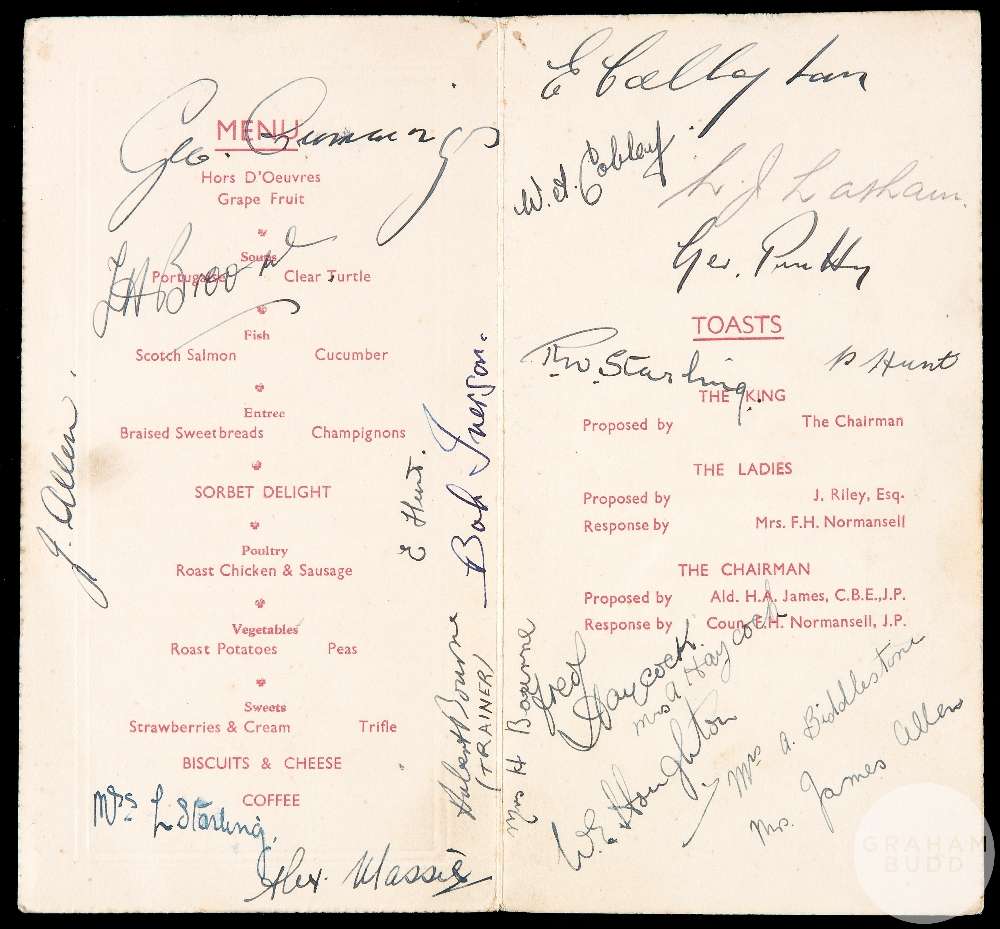 Geo. Cummings
MENU
Hors D'Oeuvres
Grape Fruit
Soups
Portugaise Clear Turtle
F H Broome
Fish
Scotch Salmon Cucumber
Entree
Braised Sweetbreads Champignons
J. Allen.
SORBET DELIGHT
E Hunt.
Bob Iverson.
Poultry
Roast Chicken & Sausage
Vegetables
Roast Potatoes Peas
Sweets
Strawberries & Cream Trifle
BISCUITS & CHEESE
COFFEE
Mrs L Starling.
Alex. Massie
Hubert Bourne
(TRAINER)
E Callaghan
W. A. Cobley.
L. J. Latham.
Geo. Pritty
TOASTS
R.W. Starling.
D Hunt
THE KING
Proposed by The Chairman
THE LADIES
Proposed by J. Riley, Esq.
Response by Mrs. F.H. Normansell
THE CHAIRMAN
Proposed by Ald. H.A. James, C.B.E.,J.P.
Response by Coun. F.H. Normansell, J.P.
Mrs H Bourne
Fred Haycock.
Mrs A Haycock
W. E. Houghton
Mrs A. Biddlestone
Mrs. James Allen
GRAHAM
BUDD